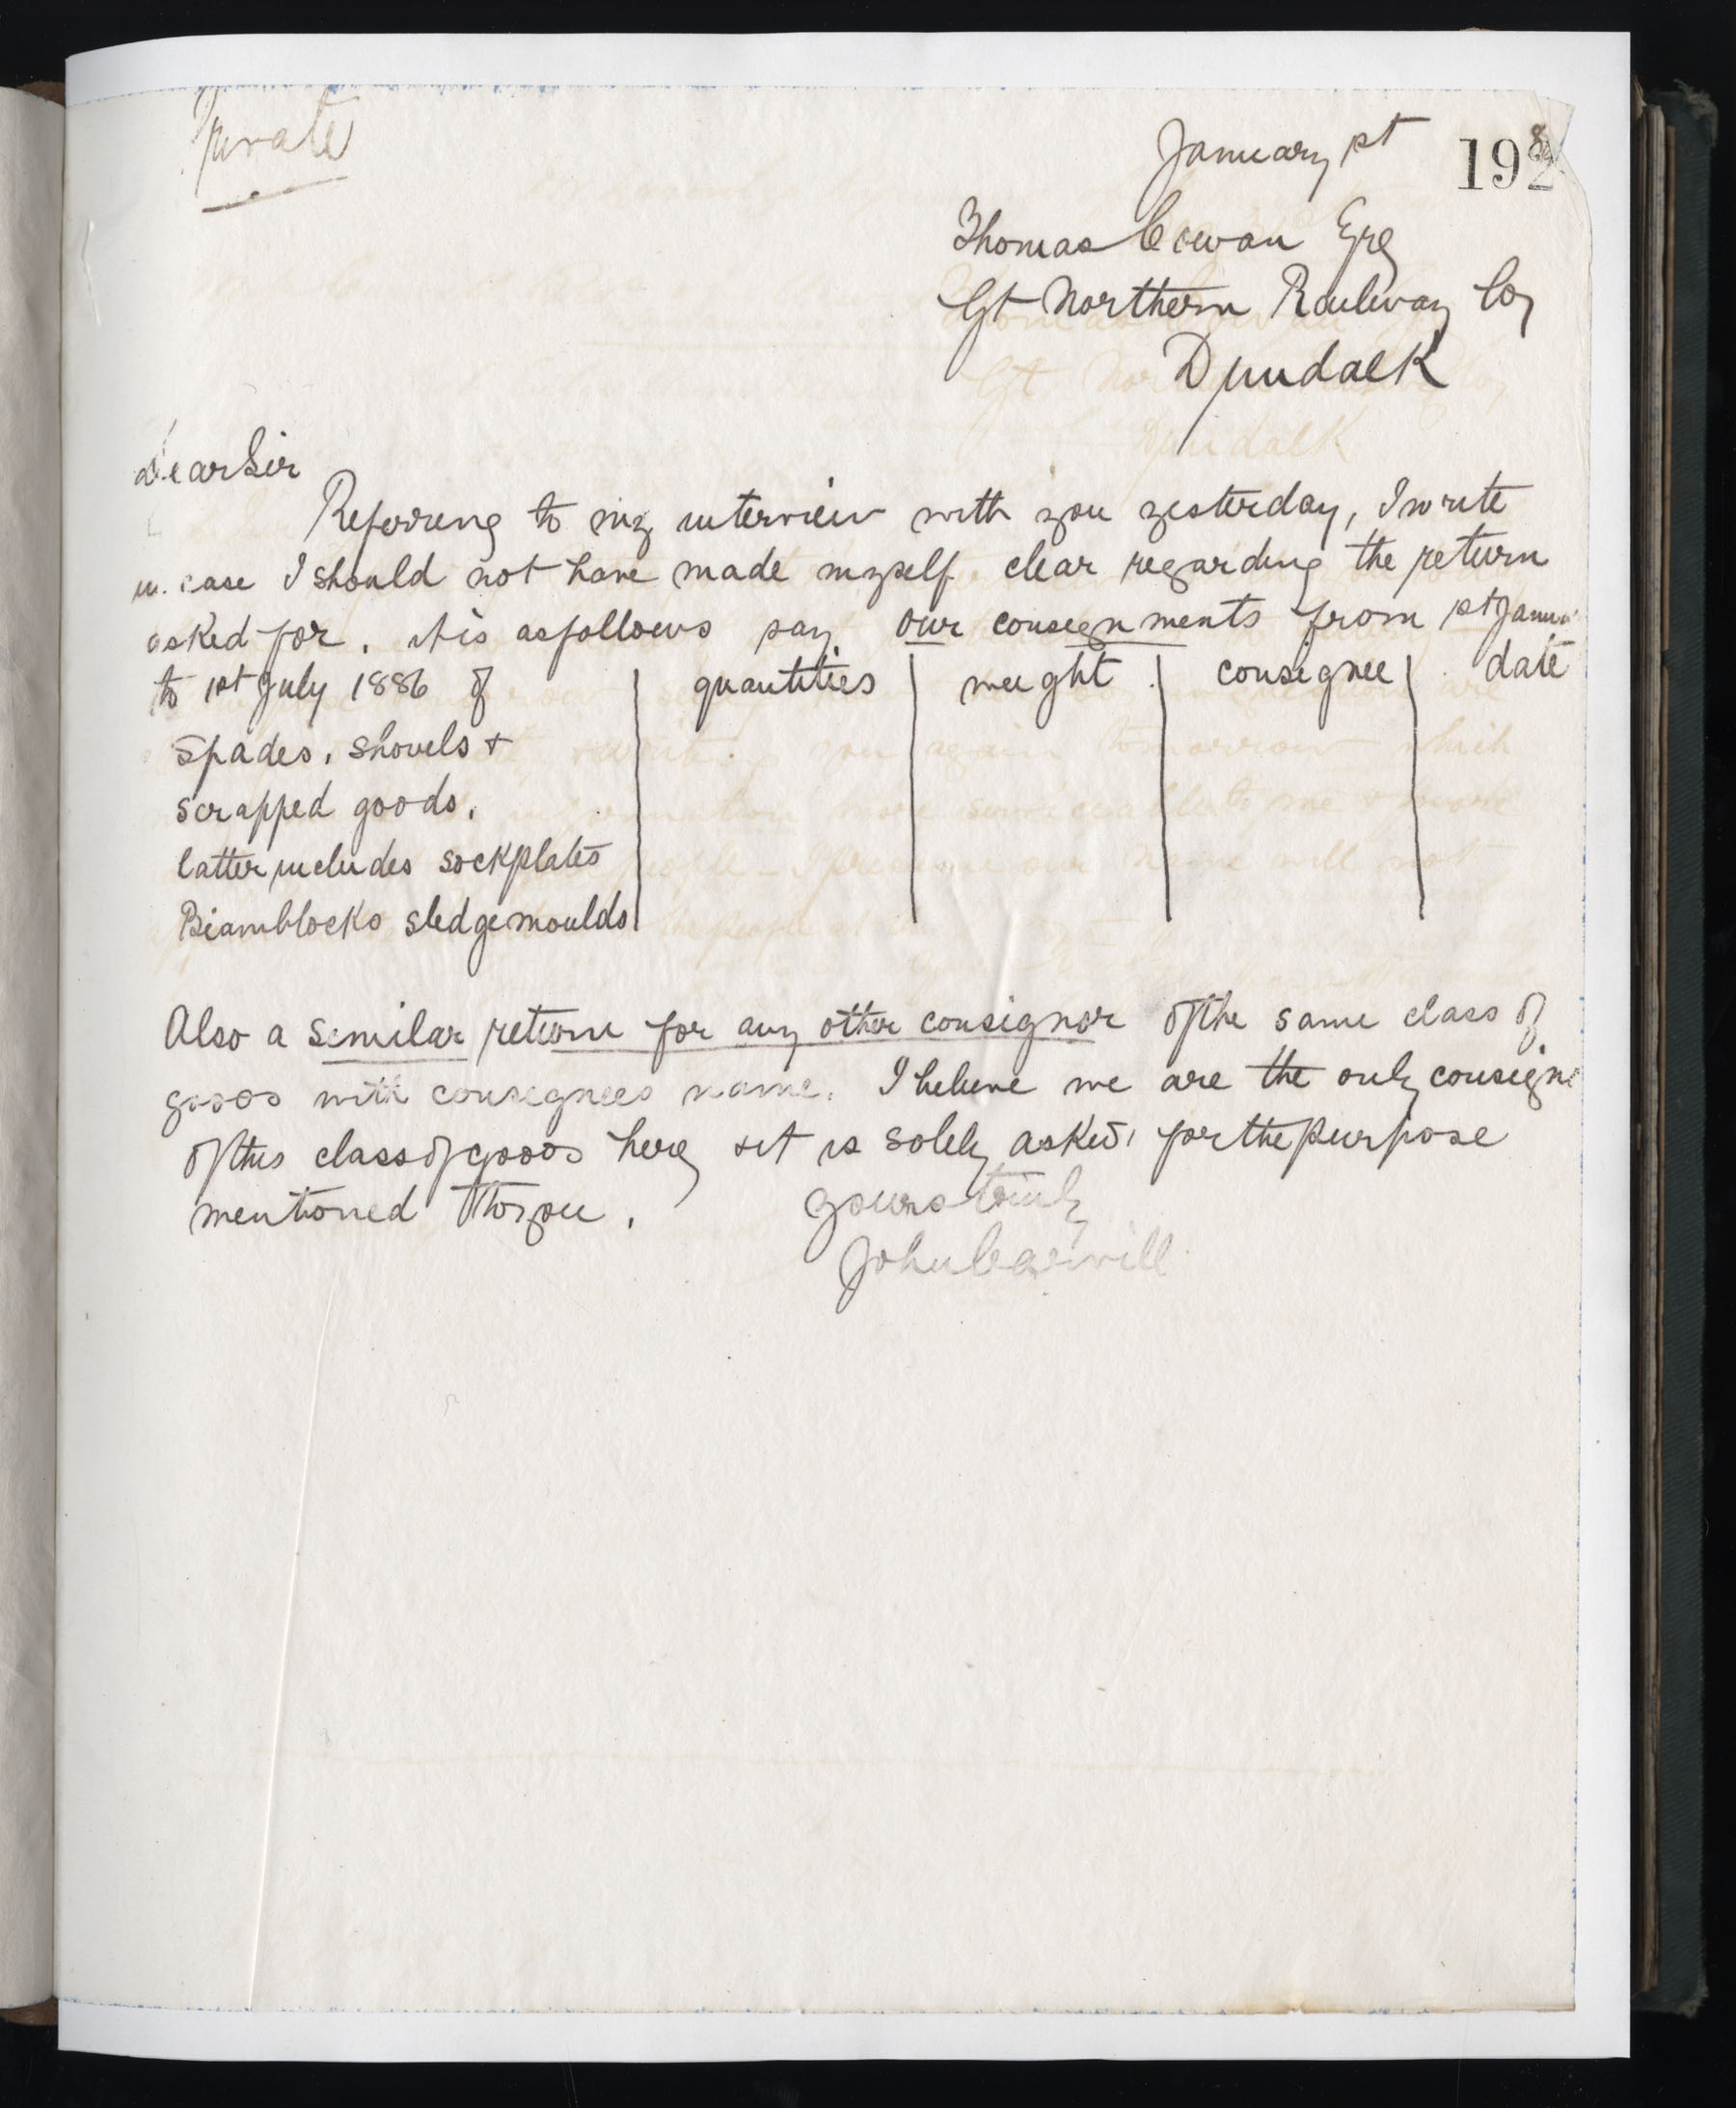 Private
January 1st 192
Thomas Cowan Esq
Gt Northern Railway Co,
Dundalk
Dear Sir
Referring to my interview with you yesterday, I write
in case I should not have made myself clear regarding the return
asked for. it is as follows say our consignments from 1st Janua
to 1st July 1886 of | quantities | weight | consignee | date
Spades, shovels &
scrapped goods.
latter includes sockplates
Beamblocks sledgemoulds
Also a similar return for any other consignor of the same class of
goods with consignees name. I believe we are the only consign
of this class of goods here & it is solely asked for the purpose
mentioned to you.
yours truly
John Carvill